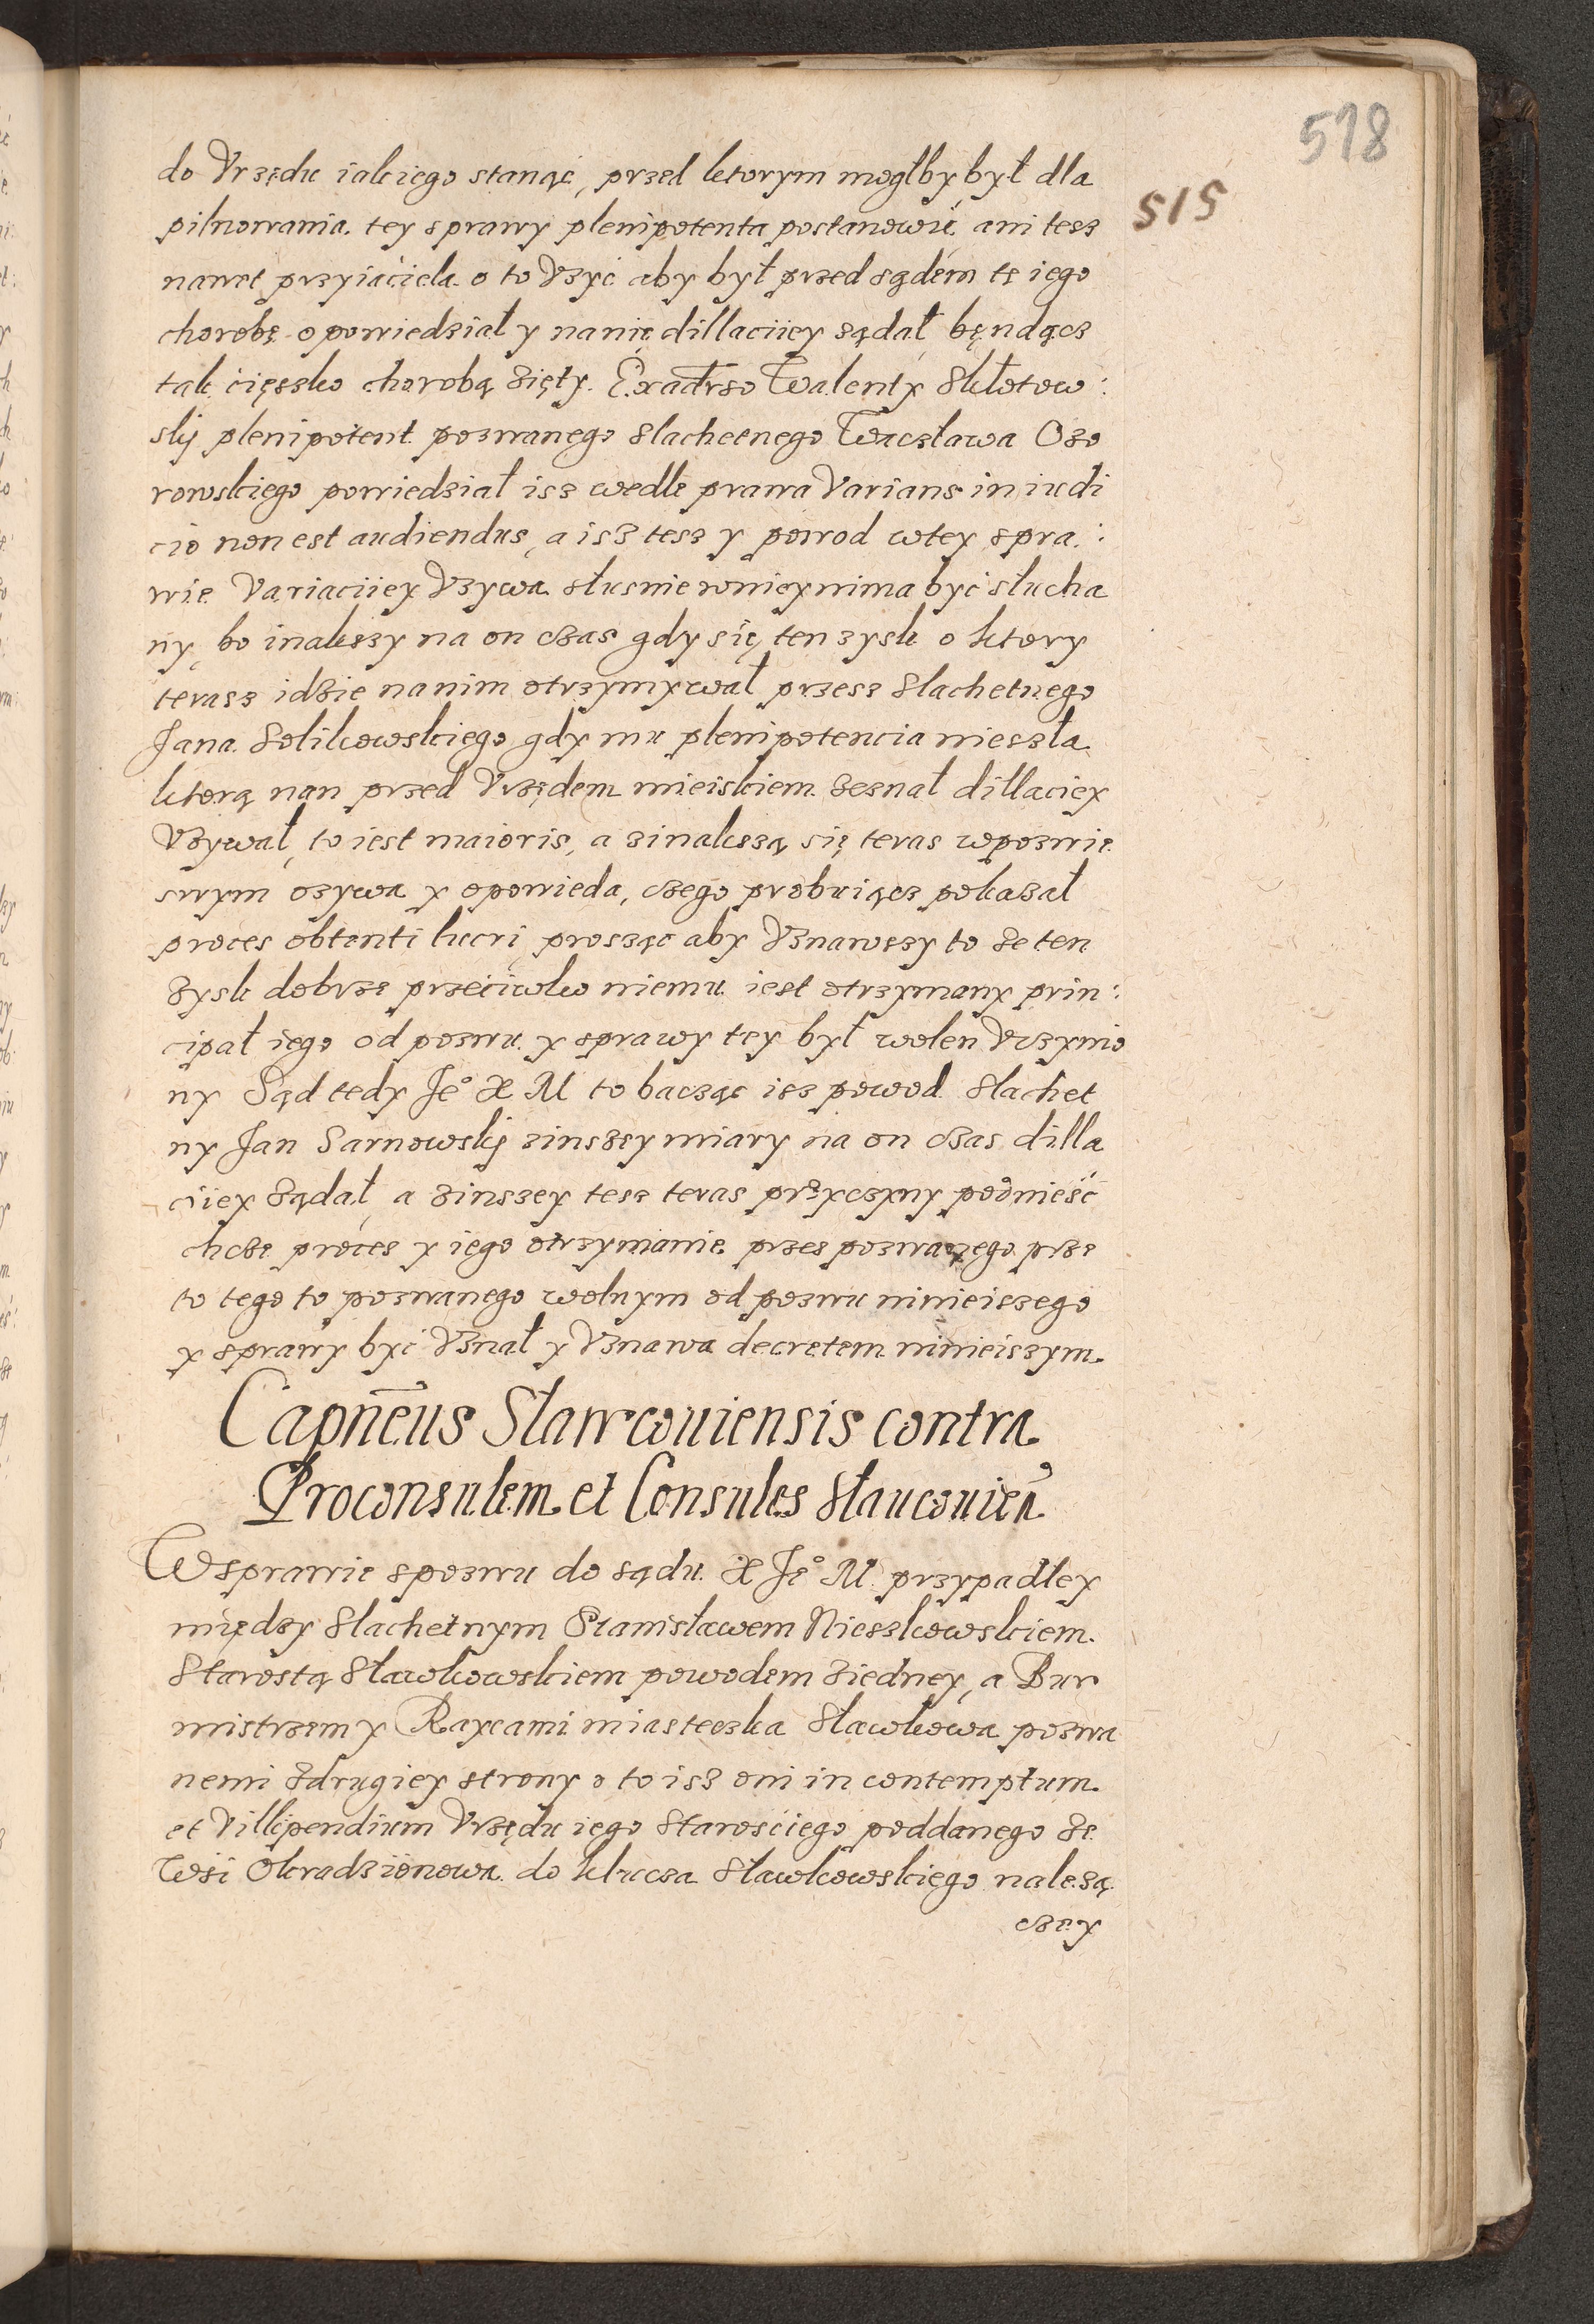 518
515
do Vrzędu iakiego stanąć, przed ktorym mogłby był dla
pilnowania tey sprawy plenipotenta postanowić ani tesz
nawet przyiaciela o to Vzyć aby był przed sądem tę iego
chorobę opowiedział y nanię dillaciiey ządał będącz
tak cięszko chorobą zięty. Ex adrso Walenty Skłotow:
skij plenipotent pozwanego slachetnego Wacsława Ozo
rowskiego powiedział isz wedle prawa Varians in iudi
cio non est audiendus, a isz tesz y powod wtey spra:
wie Variaciiey Vzywa słusnie wniey nima być słucha
ny, bo inakszy na on czas gdy się ten zysk o ktory
terasz idzie nanim otrzymywał przesz slachetnego
Jana Solikowskiego gdy mu plenipotencia nieszła
ktorą nan przed Vrzędem mieiskiem zeznał dillaciey
Vzywał, to iest maioris, a zinakszą się teras wpozwie
swym ozywa y opowieda, czego probuiącz pokazał
proces obtenti lucri prosząc aby Vznawszy to że ten
zysk dobrze przeciwko niemu iest otrzymany prin:
cipał iego od pozwu y sprawy tey był wolen Vczynio
ny Sąd tedy Je° X M to bacząc isz powod slachet
ny Jan Sarnowskij zinszey miary na on czas dilla
ciiey ządał, a zinszey tesz teras przyczyny podnieść
chce proces y iego otrzymanie przes pozwanego prze
to tego to pozwanego wolnym od pozwu ninieiszego
y sprawy być Vznał y Vznawa decretem ninieiszym.
Capneus Slawcouiensis contra
Proconsulem et Consules Slaucouien
Wsprawie spozwu do sądu X Je° M przypadłey
między slachetnym Stanisławem Nieszkowskiem
Starostą Sławkowskiem powodem ziedney, a Bur
mistrzem y Raycami miasteczka Sławkowa pozwa
nemi zdrugiey strony o to isz oni in contemptum
et Villipendium Vrzędu iego Starościego poddanego ze
Wsi Okradzionowa do klucza Sławkowskiego nalezą
czey